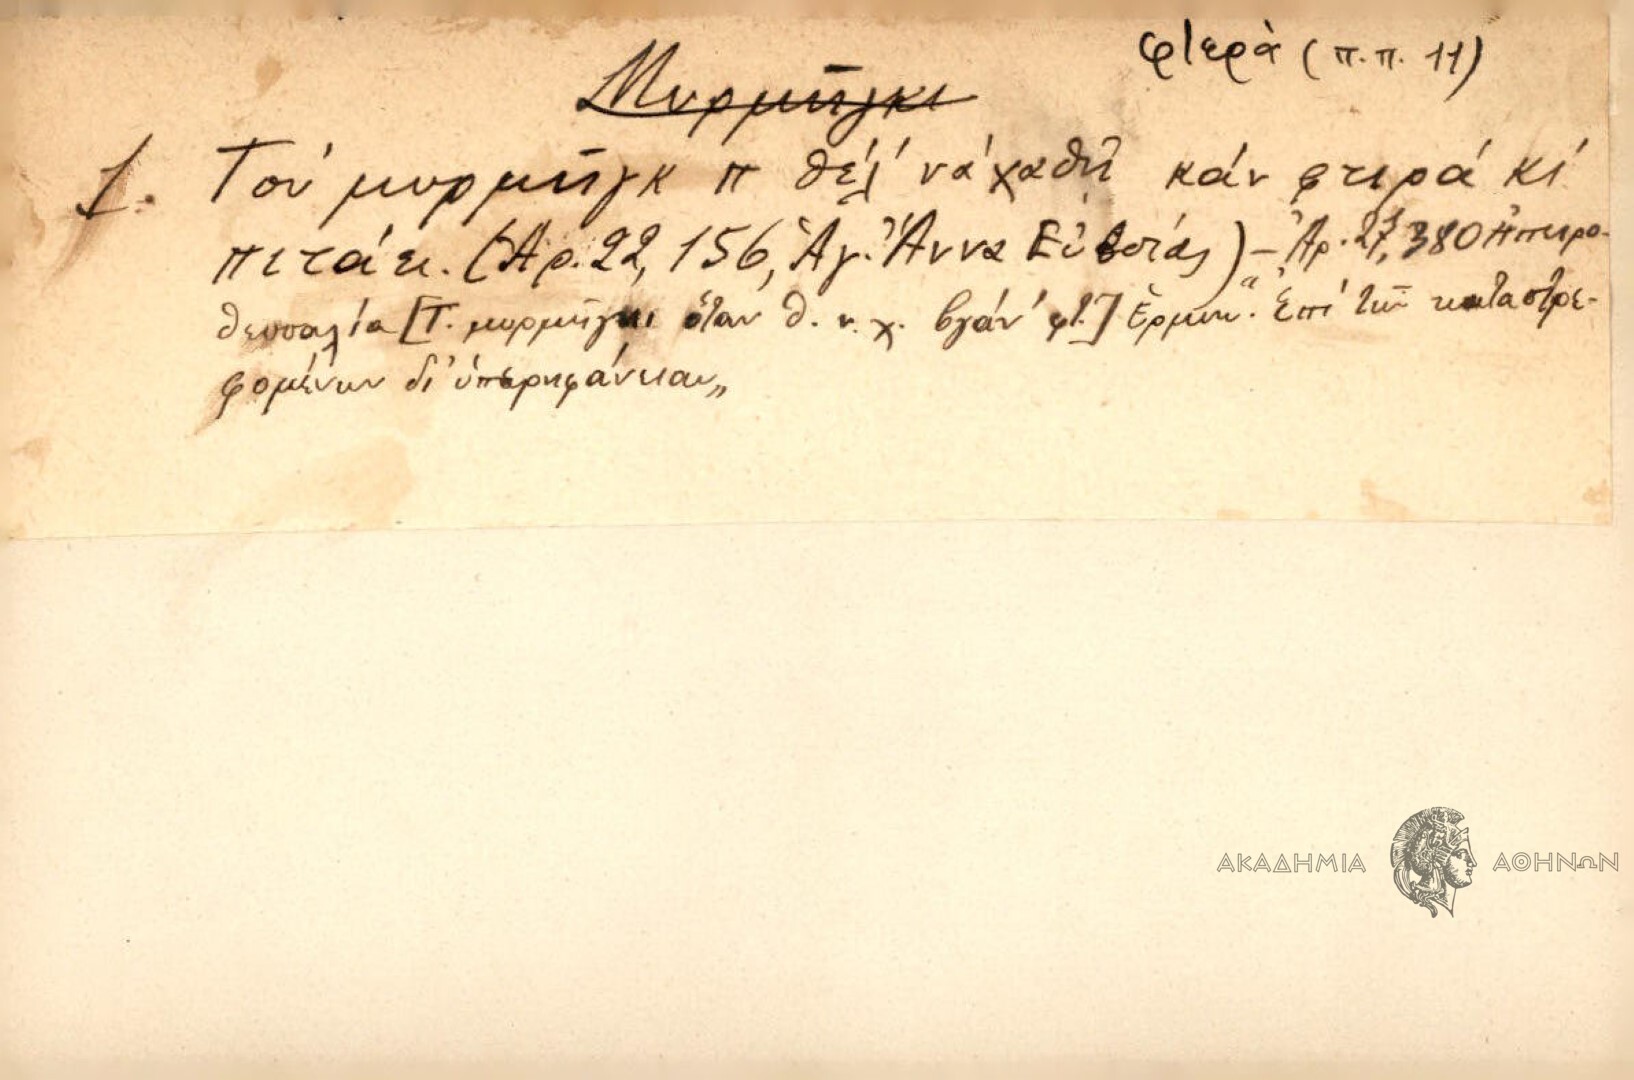 φτερὰ (π.π. 11)
Μυρμῆγκι
1. Τού μυρμῆγκ π θέλ' νά χαθῆ κάν φτερά κί
πιτάει. (Ἀρ. 22, 156, Ἁγ. Ἄννα Εὐβοίας) – Ἀρ. 27, 380 Ἠπειρο-
θεσσαλία [Τ. μυρμῆγκι ὅταν θ. ν. χ. βγάν' φτ.] Ἑρμην. "Ἐπί τῶν καταστρε-
φομένων δι' ὑπερηφάνειαν„
ΑΚΑΔΗΜΙΑ ΑΘΗΝΩΝ